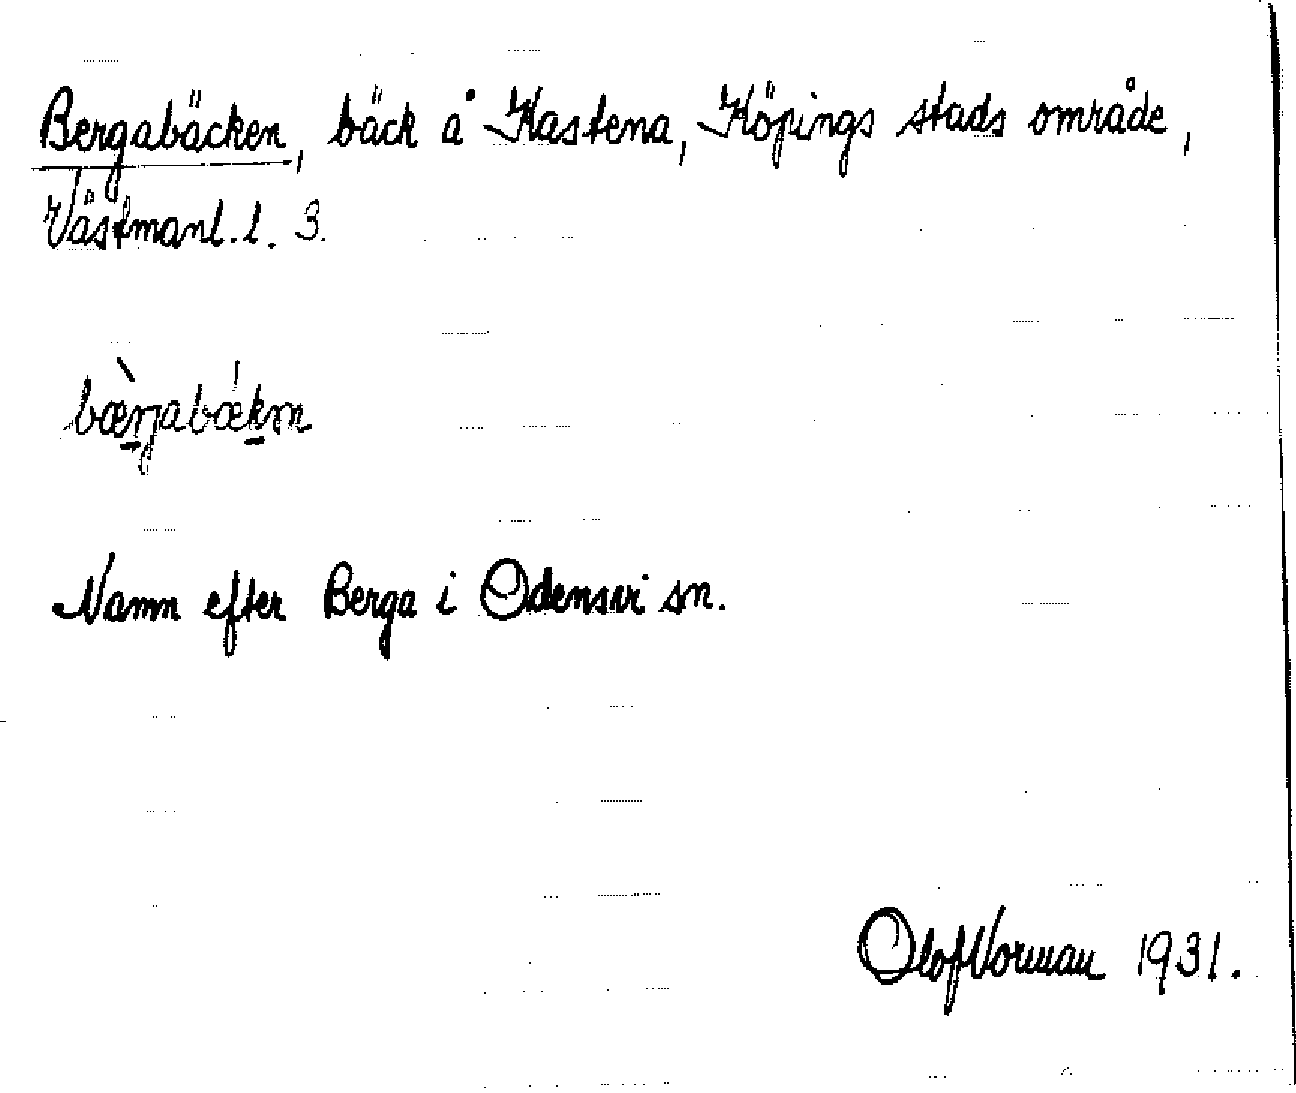 Bergabäcken, bäck å Kastena, Köpings stads område,
Västmanl. l. 3.
bæ̀rjabækən
Namn efter Berga i Odensvi sn.
Olof Norman 1931.